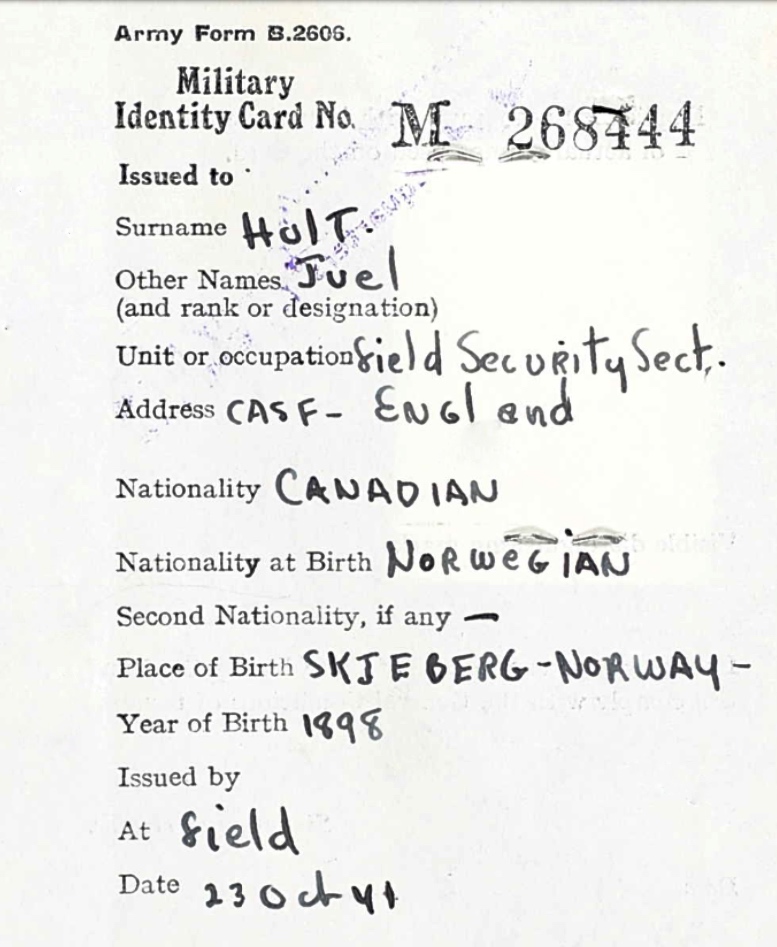 Army Form B.2606.
Military
Identity Card No. M 268444
Issued to
Surname HolT.
Other Names Juel
(and rank or designation)
Unit or occupation field Security Sect.
Address CASF - ENGland
Nationality CANADIAN
Nationality at Birth NORWeGIAN
Second Nationality, if any —
Place of Birth SKJEBERG - NORWAY -
Year of Birth 1898
Issued by
At field
Date 23 Oct 41